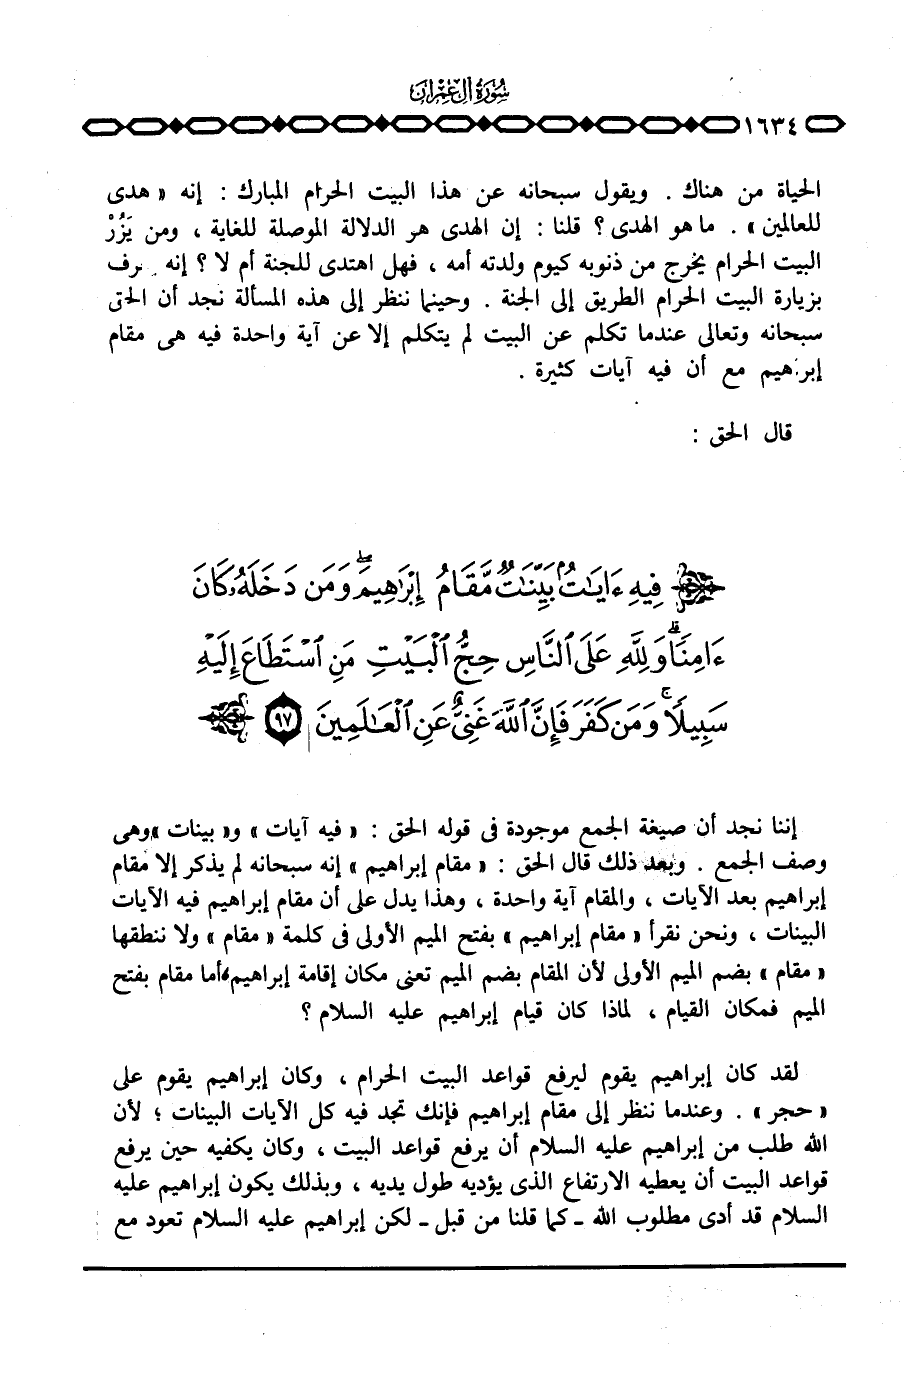 سُورَةُ آلِ عِمْرَان
١٦٣٤
الحياة من هناك . ويقول سبحانه عن هذا البيت الحرام المبارك : إنه « هدى
للعالمين » . ما هو الهدى ؟ قلنا : إن الهدى هو الدلالة الموصلة للغاية ، ومن يَزُرْ
البيت الحرام يخرج من ذنوبه كيوم ولدته أمه ، فهل اهتدى للجنة أم لا ؟ إنه
بزيارة البيت الحرام الطريق إلى الجنة . وحينما ننظر إلى هذه المسألة نجد أن الحق
سبحانه وتعالى عندما تكلم عن البيت لم يتكلم إلا عن آية واحدة فيه هى مقام
إبراهيم مع أن فيه آيات كثيرة .
قال الحق :
فِيهِ ءَايَٰتٌۢ بَيِّنَٰتٌ مَّقَامُ إِبْرَٰهِيمَۖ وَمَن دَخَلَهُۥ كَانَ
ءَامِنًاۗ وَلِلَّهِ عَلَى ٱلنَّاسِ حِجُّ ٱلْبَيْتِ مَنِ ٱسْتَطَاعَ إِلَيْهِ
سَبِيلًاۚ وَمَن كَفَرَ فَإِنَّ ٱللَّهَ غَنِىٌّ عَنِ ٱلْعَٰلَمِينَ ٩٧
إننا نجد أن صيغة الجمع موجودة فى قوله الحق : « فيه آيات » و« بينات » وهى
وصف الجمع . وبعد ذلك قال الحق : « مقام إبراهيم » إنه سبحانه لم يذكر إلا مقام
إبراهيم بعد الآيات ، والمقام آية واحدة ، وهذا يدل على أن مقام إبراهيم فيه الآيات
البينات ، ونحن نقرأ « مقام إبراهيم » بفتح الميم الأولى فى كلمة « مقام » ولا ننطقها
« مقام » بضم الميم الأولى لأن المقام بضم الميم تعنى مكان إقامة إبراهيم، أما مقام بفتح
الميم فمكان القيام ، لماذا كان قيام إبراهيم عليه السلام ؟
لقد كان إبراهيم يقوم ليرفع قواعد البيت الحرام ، وكان إبراهيم يقوم على
« حجر » . وعندما ننظر إلى مقام إبراهيم فإنك تجد فيه كل الآيات البينات ؛ لأن
الله طلب من إبراهيم عليه السلام أن يرفع قواعد البيت ، وكان يكفيه حين يرفع
قواعد البيت أن يعطيه الارتفاع الذى يؤديه طول يديه ، وبذلك يكون إبراهيم عليه
السلام قد أدى مطلوب الله ـ كما قلنا من قبل ـ لكن إبراهيم عليه السلام تعود مع